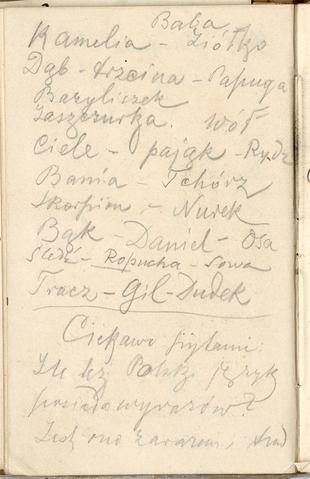 Baba
Kamelia - Ziółko
Dąb - trzcina - Papuga
Bazyliszek
Jaszczurka. Wół
Ciele - pająk - Rydz
Bania - Tchórz
Skorpion - Nurek
Bąk - Daniel - Osa
Śledź - Ropucha - Sowa
Tracz - Gil - Dudek
Ciekawe pytanie:
Ile język
posiada wyrazów?
Jest ono zarazem,